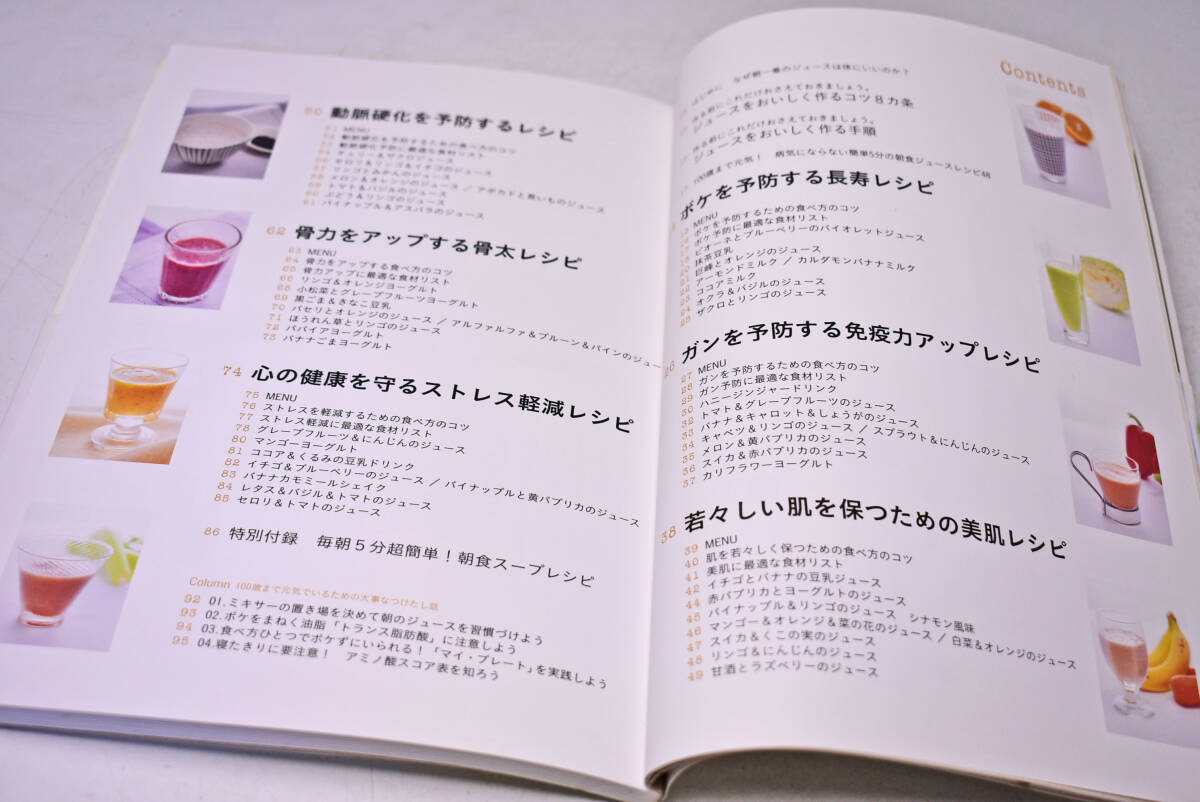 Contents
はじめに　なぜ朝一番のジュースは体にいいのか？
作る前にこれだけおさえておきましょう。
ジュースをおいしく作るコツ8カ条
作る前にこれだけおさえておきましょう。
ジュースをおいしく作る手順
100歳まで元気！　病気にならない簡単5分の朝食ジュースレシピ48
ボケを予防する長寿レシピ
MENU
ボケを予防するための食べ方のコツ
ボケ予防に最適な食材リスト
ピオーネとブルーベリーのバイオレットジュース
抹茶豆乳
巨峰とオレンジのジュース
アーモンドミルク / カルダモンバナナミルク
23 ココアミルク
24 オクラ＆バジルのジュース
25 ザクロとリンゴのジュース
26 ガンを予防する免疫力アップレシピ
27 MENU
28 ガンを予防するための食べ方のコツ
29 ガン予防に最適な食材リスト
30 ハニージンジャードリンク
32 トマト＆グレープフルーツのジュース
33 バナナ＆キャロット＆しょうがのジュース
34 キャベツ＆リンゴのジュース / スプラウト＆にんじんのジュース
35 メロン＆黄パプリカのジュース
36 スイカ＆赤パプリカのジュース
37 カリフラワーヨーグルト
38 若々しい肌を保つための美肌レシピ
39 MENU
40 肌を若々しく保つための食べ方のコツ
41 美肌に最適な食材リスト
42 イチゴとバナナの豆乳ジュース
44 赤パプリカとヨーグルトのジュース
45 パイナップル＆リンゴのジュース　シナモン風味
46 マンゴー＆オレンジ＆菜の花のジュース / 白菜＆オレンジのジュース
47 スイカ＆くこの実のジュース
48 リンゴ＆にんじんのジュース
49 甘酒とラズベリーのジュース
50 動脈硬化を予防するレシピ
51 MENU
52 動脈硬化を予防するための食べ方のコツ
53 動脈硬化予防に最適な食材リスト
54 チェリー＆ザクロジュース
56 セロリ＆リンゴ＆イチゴのジュース
57 リンゴとみかんのジュース
58 メロン＆オレンジのジュース / アボカドと長いものジュース
59 トマト＆バジルのジュース
60 ぶどう＆リンゴのジュース
61 パイナップル＆アスパラのジュース
62 骨力をアップする骨太レシピ
63 MENU
64 骨力をアップする食べ方のコツ
65 骨力アップに最適な食材リスト
66 リンゴ＆オレンジヨーグルト
68 小松菜とグレープフルーツヨーグルト
69 黒ごま＆きなこ豆乳
70 パセリとオレンジのジュース / アルファルファ＆プルーン＆パインのジュー
71 ほうれん草とリンゴのジュース
72 パパイアヨーグルト
73 バナナごまヨーグルト
74 心の健康を守るストレス軽減レシピ
75 MENU
76 ストレスを軽減するための食べ方のコツ
77 ストレス軽減に最適な食材リスト
78 グレープフルーツ＆にんじんのジュース
80 マンゴーヨーグルト
81 ココア＆くるみの豆乳ドリンク
82 イチゴ＆ブルーベリーのジュース / パイナップルと黄パプリカのジュース
83 バナナカモミールシェイク
84 レタス＆バジル＆トマトのジュース
85 セロリ＆トマトのジュース
86 特別付録　毎朝5分超簡単！朝食スープレシピ
Column 100歳まで元気でいるための大事なつけたし話
92 01.ミキサーの置き場を決めて朝のジュースを習慣づけよう
93 02.ボケをまねく油脂「トランス脂肪酸」に注意しよう
94 03.食べ方ひとつでボケずにいられる！「マイ・プレート」を実践しよう
95 04.寝たきりに要注意！　アミノ酸スコア表を知ろう